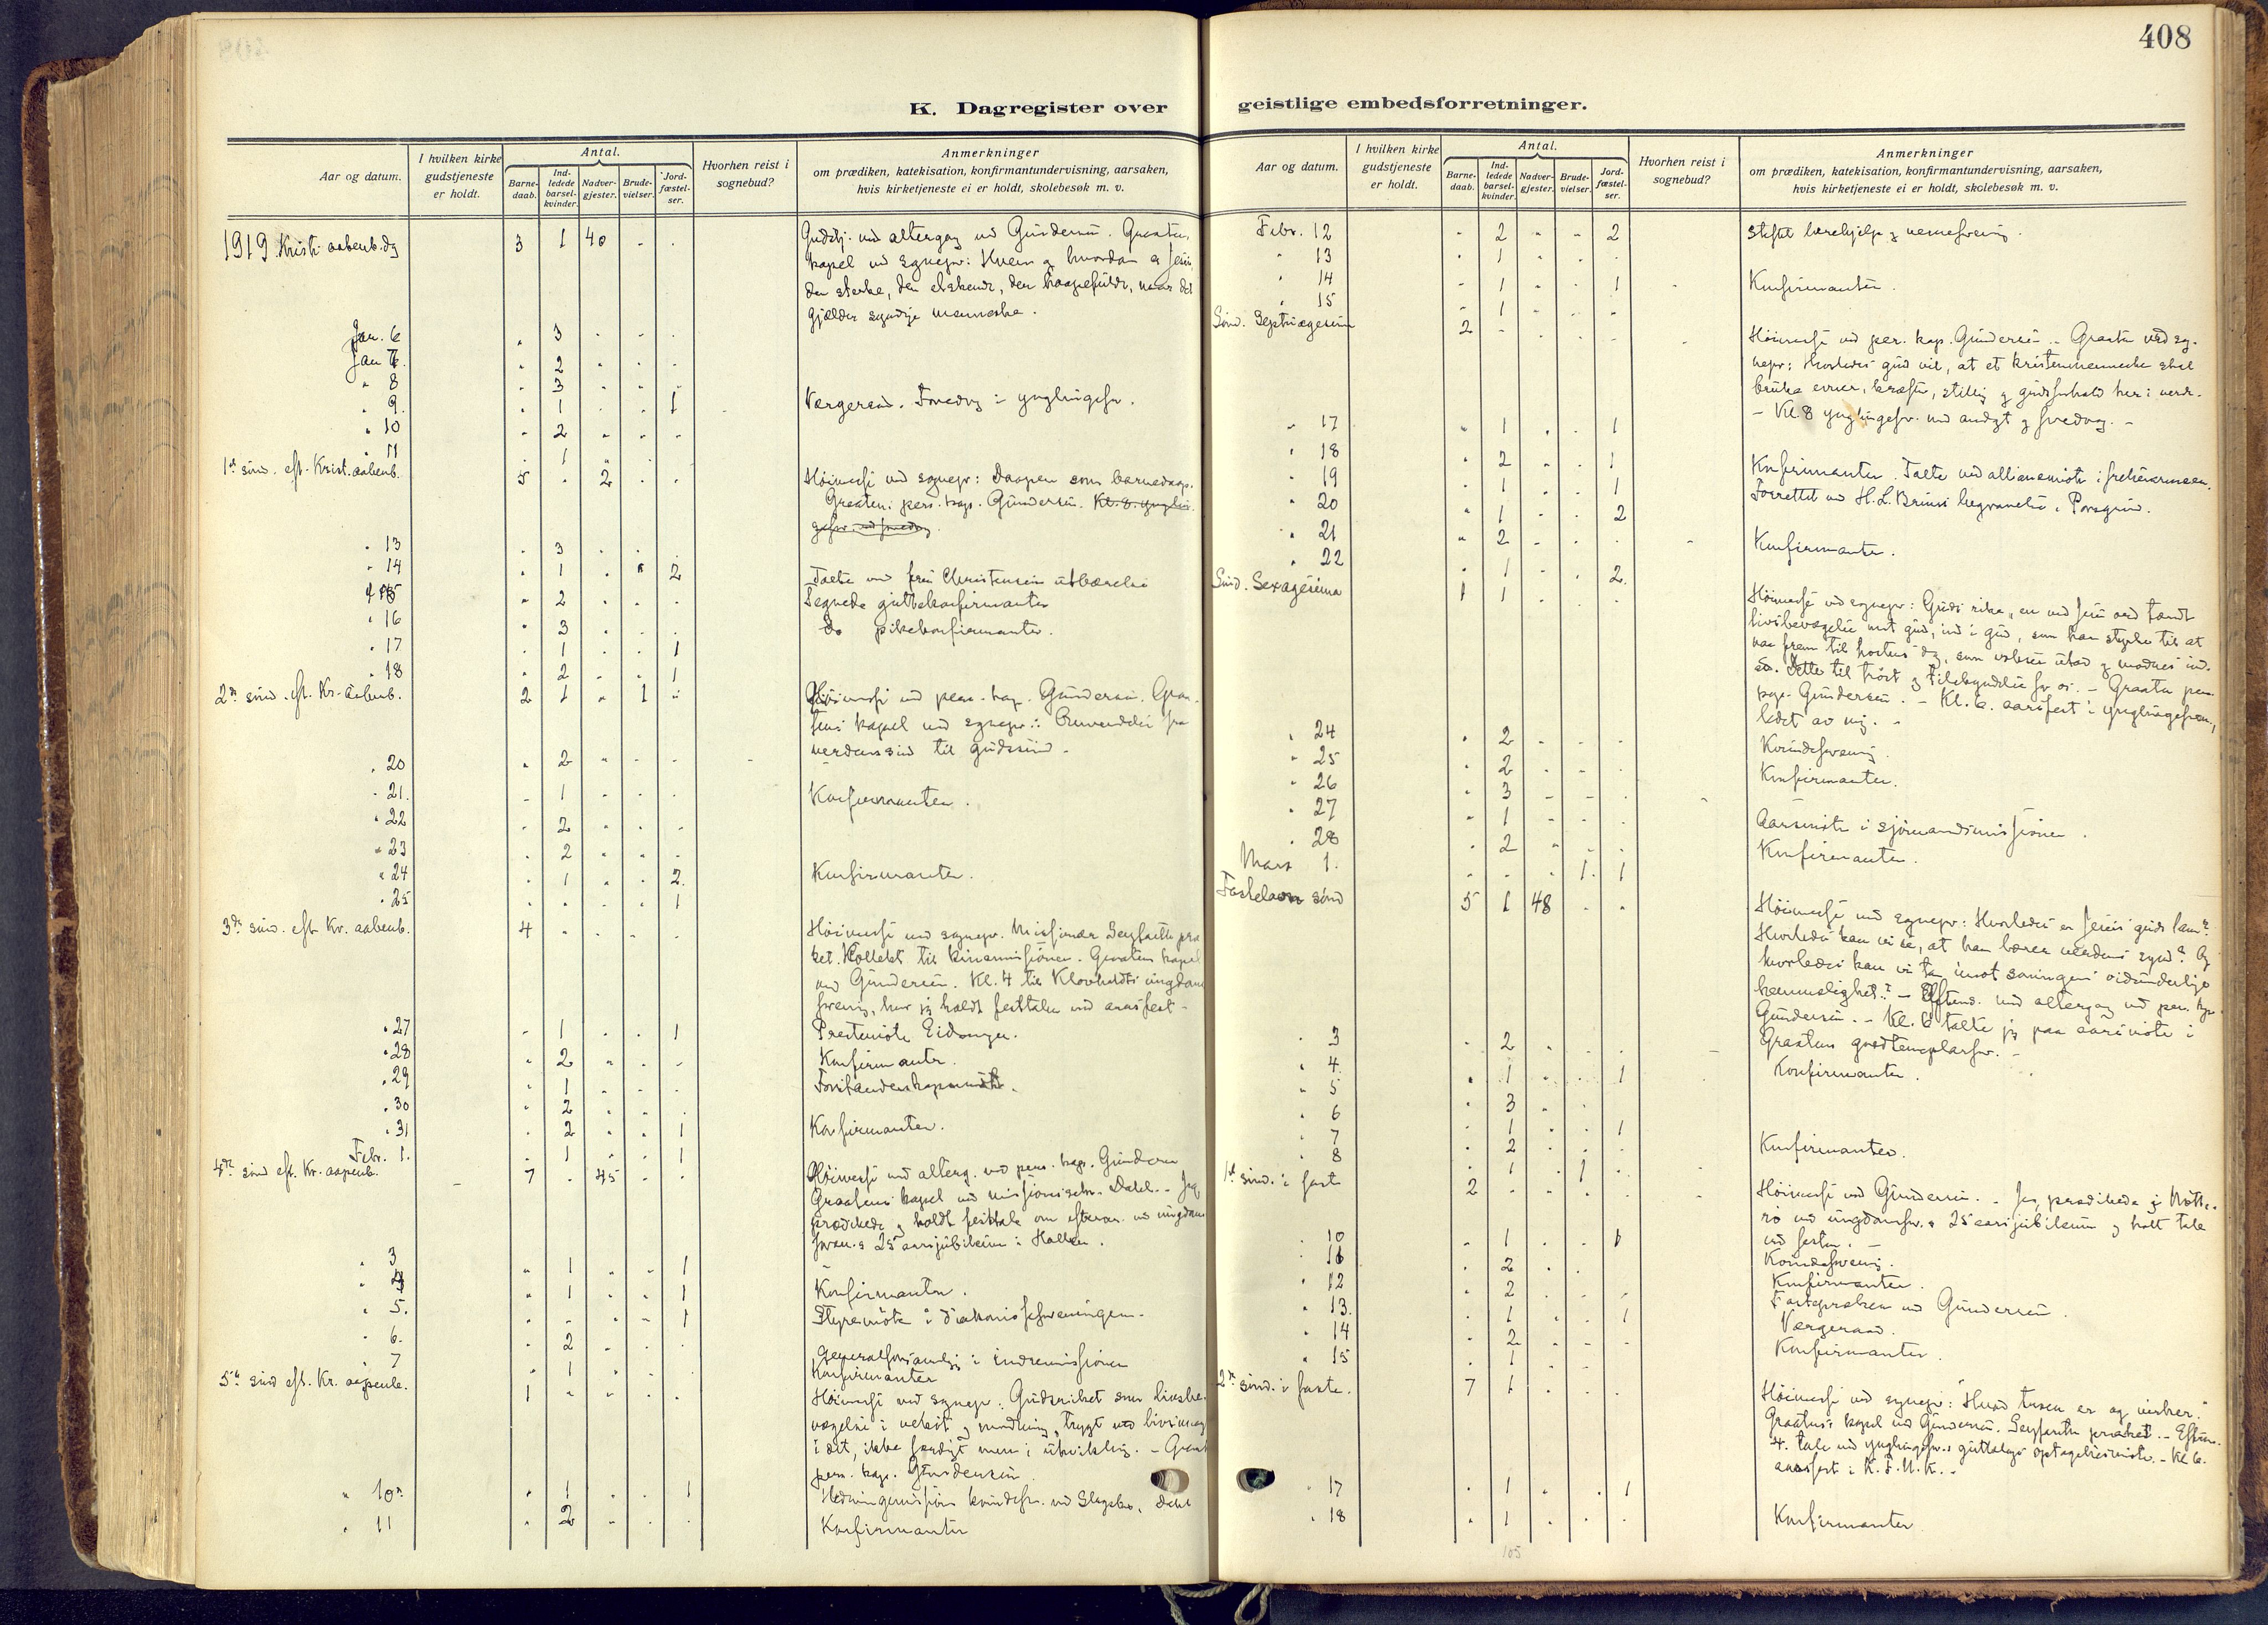 408
K. Dagregister over geistlige embedsforretninger.
Aar og datum. I hvilken kirke gudstjeneste er holdt. Antal. Barnedaab. Indledede barselkvinder. Nadvergjester. Brudevielser. Jordfæstelser. Hvorhen reist i sognebud? Anmerkninger om prædiken, katekisation, konfirmantundervisning, aarsaken, hvis kirketjeneste ei er holdt, skolebesøk m. v.
1919. Kristi aabenb. dg 3 1 40 - - Gudstj. med altergang ved Gundersen. Graaten
kapel ved sognepr: Hvem og hvordan er Jesus,
den sterke, den elskende, den haapefulde, naar det
gjælder syndige menneske.
Jan. 6 " 3 - - -
Jan 7. " 2 - - -
" 8 " 3 - - -
" 9. " 1 - - 1 Vergeraad. Foredrag i ynglingefor.
" 10 " 2 - - -
" 11 " 1 -
1ste sønd. eft. Krist. aabenb. 5 - 2 - - Høimesse ved sognepr: Daapen som barnedaap.
Graaten: pers. kap. Gundersen. Kl. 8. ynglin
gefor. ved foredrag
" 13 " 3 - - -
" 14 " 1 - " 2 Talte ved fru Christensens utbærelse
" 15 " 2 - - - Tegnede guttekonfirmanter
" 16 " 3 - - - Do pikekonfirmanter.
" 17 " 1 - - 1
" 18 " 2 - - 1
2den sønd. eft. Kr. aabenb. 2 1 " 1 " Høimesse ved pers. kap. Gundersen. Graa-
tens kapel ved sognepr.: Omvendelse fra
verdenssind til gudssind.
" 20 " 2 - - -
" 21. - 1 - - - Konfirmanter.
" 22 - 2 - - -
" 23 - 2 " " -
" 24 - 1 - - 2. Konfirmanter.
" 25 - - - - 1
3die sønd. eft Kr. aabenb. 4 - - - - Høimesse ved sognepr. Missionær Seyffarth præ
ket. Kollekt til kinamissionen. Graatens kapel
ved Gundersen. Kl. 4 til Klovholdts ungdoms
forening, hvor jeg holdt festtalen ved aarsfest -
" 27 - 1 - - 1 Prestemøte Eidanger.
" 28 - 2 - - - Konfirmanter.
" 29 - 1 - - - Forstanderskapsmøte.
" 30 - 2 - - -
" 31 - 2 - - 1 Konfirmanter.
Febr. 1. - 1 - - 1
4de sønd eft. Kr. aapenb. 7 - 45 - - Høimesse med alterg. ved pers. kap. Gundersen
Graatens kapel ved missionssekr. Dahl. - Jeg
prædikede og holdt festtale om efterm. ved ungdoms
foren.s 25 aarsjubilæum i Hallen.
" 3 " 1 - - 1
" 4 " 1 - - 1 Konfirmanter.
" 5. - - - - 1 Styremøte i diakonisseforeningen.
" 6. - 2 - - -
" 7 " 1 - - Generalforsamling i indremissionen
Konfirmanter
5te sønd eft. Kr. aapenb. 1 - - - - Høimesse ved sognepr.: Gudsriket som livsbe-
vægelse i vekst og modning, trygt ved livsmagt
i det, ikke færdigt men i utvikling. - Graaten
pers. kap. Gundersen.
" 10. " 1 - - 1 Hedningemission kvindefor. ved Slagsbro, Dahl
" 11 " 2 - - - Konfirmanter
Febr. 12 - 2 - - 2
" 13 - 1 - - -
" 14 - 1 - - 1 Konfirmanter.
" 15 - 1 - - -
Sønd. Septuagesima 2 - - - - Høimesse ved per. kap. Gundersen. - Graaten ved sog-
nepr: Hvorledes gud vil, at et kristenmenneske skal
bruke evner, kræfter, stilling og gudsforhold her i verd.
- Kl. 8 ynglingefor. med andagt og foredrag. -
" 17 " 1 - - 1
" 18 - 2 - - 1 Konfirmanter. Talte ved alliancemøte i frelsesarmeen.
" 19 - 1 - - 1 Forrettet ved H. L. Bruuss begravelse i Porsgrund.
" 20 " 1 - - 2
" 21 " 2 - - - Konfirmanter.
" 22 - 1 - - 2.
Sønd. Sexagesima 1 1 - - - Høimesse ved sognepr: Guds rike, en ved Jesu ord tændt
livsbevægelse mot gud, ind i gud, som har styrke til at
naa frem til høstens dag, som vokser utad og modnes ind-
ad. Dette til trøst og tilskyndelse for os. - Graaten per.
kap. Gundersen. - Kl. 6. aarsfest i ynglingeforen,
ledet av mig. -
" 24 - 2 - - - Kvindeforening.
" 25 - 2 - - - Konfirmanter.
" 26 - 3 - - -
" 27 - 1 - - - Aarsmøte i sjømandsmissionen.
" 28 - 2 - - - Konfirmanter.
Mars 1. - - - 1. 1
Fastelavn sønd 5 1 48 - - Høimesse ved sognepr: Hvorledes er Jesus guds lam?
Hvorledes kan vi se, at han bærer verdens synd? Og
hvorledes kan vi ta imot soningens vidunderlige
hemmelighet? - Efterm. med altergang ved pers. kap.
Gundersen. - Kl. 6 talte jeg paa aarsmøte i
Graatens godtemplarfor. -
" 3 - 2 - - -
" 4. - 1 - - 1 Konfirmanter.
" 5 - 3 - -
" 6 - 1 - - 1
" 7 - 2 - - - Konfirmanter.
" 8 - 1 - 1 -
1ste sønd. i faste 2 - - - - Høimesse ved Gundersen. - Jeg prædikede i Nøtte-
rø ved ungdomsfor.s 25 aarsjubilæum og holt tale
ved festen. -
" 10 - 1 - - 1
" 11 - 2 - - Kvindeforening.
" 12 - 2 - - - Konfirmanter.
" 13. - 1 - - 1 Fastepræken ved Gundersen.
" 14 - 2 - - - Vergeraad.
" 15 - 1 - - Konfirmanter.
2den sønd. i faste. 7 1 - - - Høimesse ved sognepr: "Hvad troen er og virker."
Graatens kapel ved Gundersen. Seyffarth præket. - Efterm.
4. tale ved ynglingefor.s guttelags optagelsesmøte. - Kl 6.
aarsfest i K. F. U. K. -
" 17 - 1 - - 1
" 18 - 1 - - - Konfirmanter
105